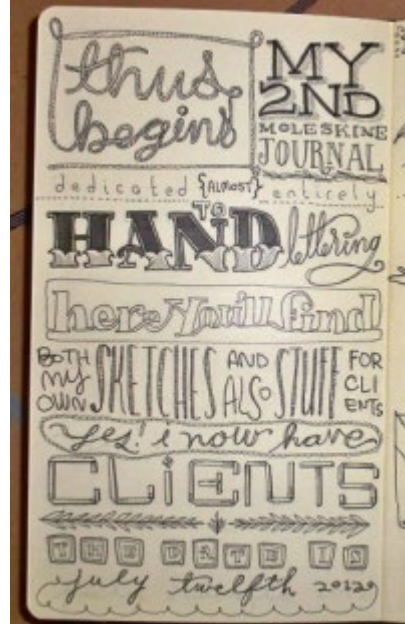 thus
begins
MY
2ND
MOLESKINE
JOURNAL
dedicated {ALMOST} entirely
TO
HAND lettering
here you'll find
BOTH
my
OWN
SKETCHES
AND
ALSO
STUFF
FOR
CLI
ENTS
yes! i now have
CLIENTS
THE DATE IS
july twelfth 2012